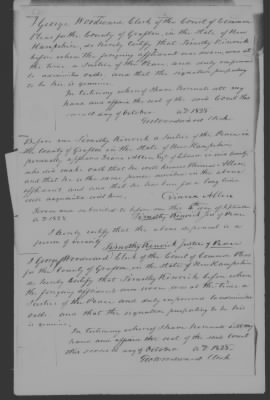 I George Woodward Clerk of the Court of Common
Pleas for the County of Grafton, in the State of New
Hampshire, do hereby certify that Timothy Kenrick
before whom the foregoing affidavit was sworn was at
the time a Justice of the Peace and duly empowered
to administer oaths, and that the signature purporting
to be his is genuine.
In testimony whereof I have hereunto set my
hand and affix the seal of the said Court this
day of October AD 1828
Geo Woodward Clerk
Before me Timothy Kenrick a Justice of the Peace in
the County of Grafton in the State of New Hampshire
personally appears Diarca Allen Esq of Lebanon in said County
who did make oath that he well knows Allen
and that he is the same person named in the above
affidavit and that he has him for a long time
well acquainted with him. Diarca Allen
Sworn and subscribed to before me the day of
AD 1828 Timothy Kenrick Jus of Peace
I hereby certify that the above deponent is a
person of veracity
Timothy Kenrick Justice of Peace
I George Woodward Clerk of the Court of Common Pleas
for the County of Grafton, in the State of New Hampshire
do hereby certify that Timothy Kenrick before whom
the foregoing affidavit was sworn was at the time a
Justice of the Peace and duly empowered to administer
oaths and that the signature purporting to be his
is genuine.
In testimony whereof I have hereunto set my
hand and affix the seal of the said Court
this day of October AD 1828.
Geo Woodward Clerk